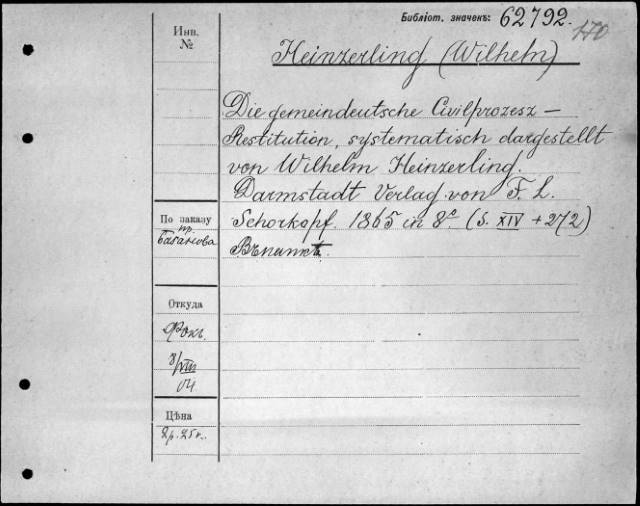 Библіот. значекъ: 62792.
170
Инв.
№
Heinzerling (Wilhelm)
Die gemeindeutsche Civilprozesz —
Restitution, systematisch dargestellt
von Wilhelm Heinzerling.
Darmstadt Verlag von F. L.
Schorkopf. 1865 in 8º. (S. XIV + 272)
По заказу
пр.
Въ папкѣ.
Откуда
Фокъ.
8/VIII
04
Цѣна
2р. 25к.